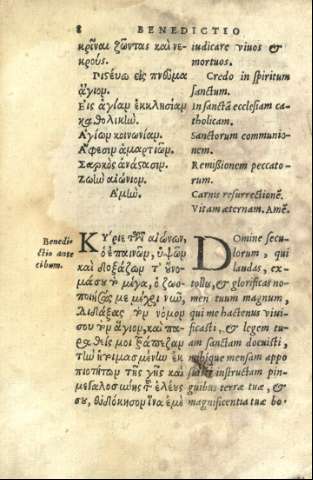 8 BENEDICTIO
κρῖναι ζῶντας καὶ νε-
κρούς.
Πιστεύω εἰς πνεῦμα
ἅγιον.
Εἰς ἁγίαν ἐκκλησίαν
καθολικήν.
Ἁγίων κοινωνίαν.
Ἄφεσιν ἁμαρτιῶν.
Σαρκὸς ἀνάστασιν.
Ζωὴν αἰώνιον.
Ἀμήν.
iudicare viuos &
mortuos.
Credo in spiritum
sanctum.
In sanctā ecclesiam ca-
tholicam.
Sanctorum communio-
nem.
Remissionem peccato-
rum.
Carnis resurrectionē.
Vitam æternam. Amē.
Benedi-
ctio ante
cibum.
Κύριε τῶν αἰώνων,
ὁ ἐπαινῶν, ὑψῶν
καὶ δοξάζων τ᾽ ὄνο-
μά σου μέγα, ὁ ζωο-
ποιήσας με μέχρι νῦν,
διδάξας νόμον
ἅγιον, καὶ πα-
μοι τράπεζαν
ἡτοιμασμένην ἐκ
τῆς γῆς καὶ
ἐλέους
σου, εὐδόκησον ἵνα ἐμὲ
Domine secu-
lorum, qui
laudas, ex-
tollis, & glorificas no-
men tuum magnum,
qui me hactenus viui-
ficasti, & legem tu-
am sanctam docuisti,
mihique mensam appo
suisti instructam pin-
guibus terræ tuæ, &
magnificentia tuæ bo-